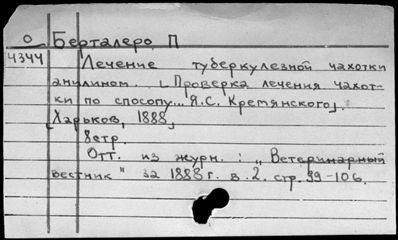 О Берталеро П
4344 Лечение туберкулезной чахотки
анилином. [Проверка лечения чахот-
ки по способу... Я.С. Кремянского].
[Харьков, 1888]
8стр.
Отт. из журн.: „Ветеринарный
вестник" за 1888 г. в. 2. стр. 99-106.